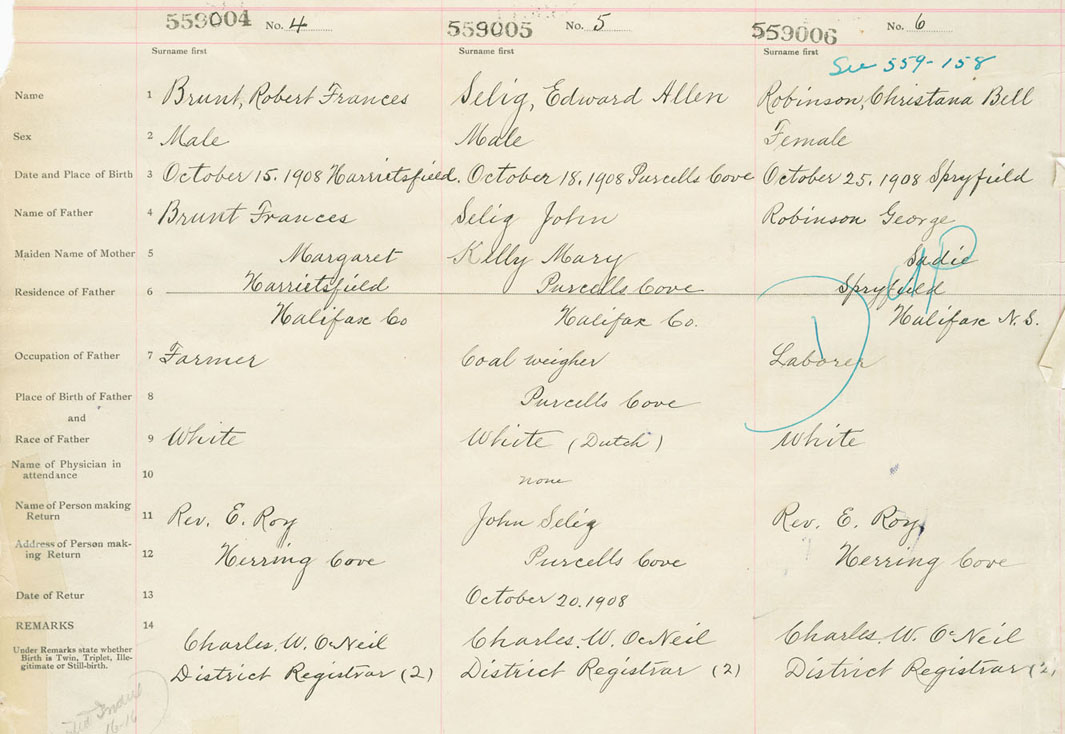 559004 No. 4 559005 No. 5 559006 No. 6
Surname first Surname first Surname first
See 559-158
Name 1 Brunt, Robert Frances Selig, Edward Allen Robinson, Christana Bell
Sex 2 Male Male Female
Date and Place of Birth 3 October 15. 1908 Harrietsfield. October 18. 1908 Purcells Cove October 25. 1908 Spryfield
Name of Father 4 Brunt Frances Selig John Robinson George
Maiden Name of Mother 5 Margaret Kelly Mary Sadie
Residence of Father 6 Harrietsfield Purcells Cove Spryfield
Halifax Co Halifax Co. Halifax N.S.
Occupation of Father 7 Farmer Coal weigher Laborer
Place of Birth of Father 8 Purcells Cove
and
Race of Father 9 White White (Dutch) White
Name of Physician in
attendance 10 none
Name of Person making
Return 11 Rev. E. Roy John Selig Rev. E. Roy
Address of Person mak-
ing Return 12 Herring Cove Purcells Cove Herring Cove
Date of Retur 13 October 20. 1908
REMARKS 14
Under Remarks state whether
Birth is Twin, Triplet, Ille-
gitimate or Still-birth.
Charles. W. O'Neil Charles. W. O'Neil Charles. W. O'Neil
District Registrar (2) District Registrar (2) District Registrar (2)
16-16